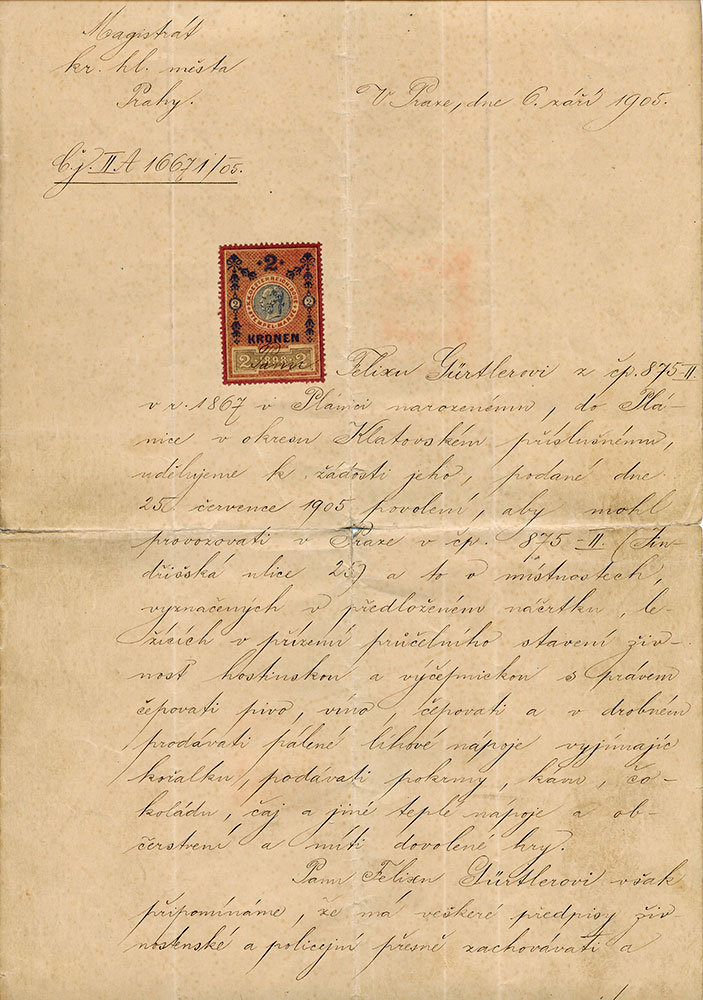 Magistrát
kr. hl. města
Prahy.
V Praze, dne 6. září 1905.
Č.j. II A 16671/05.
2
K.K. OESTERREICHISCHE STEMPEL-MARKE
2 2
KRONEN
2 1898 2
Panu Felixu Gürtlerovi z čp. 875-II
v r. 1867 v Plánici narozenému, do Plá-
nice v okresu Klatovském příslušnému,
udělujeme k žádosti jeho, podané dne
25. července 1905 povolení, aby mohl
provozovati v Praze v čp. 875-II. (Jin-
dřišská ulice 25) a to v místnostech,
vyznačených v předloženém náčrtku, le-
žících v přízemí průčelního stavení živ-
nost hostinskou a výčepnickou s právem
čepovati pivo, víno, čepovati a v drobném
prodávati pálené lihové nápoje vyjímajíc
kořalku, podávati pokrmy, kávu, čo-
koládu, čaj a jiné teplé nápoje a ob-
čerstvení a míti dovolené hry.
Panu Felixu Gürtlerovi však
připomínáme, že má veškeré předpisy živ-
nostenské a policejní přesně zachovávati a